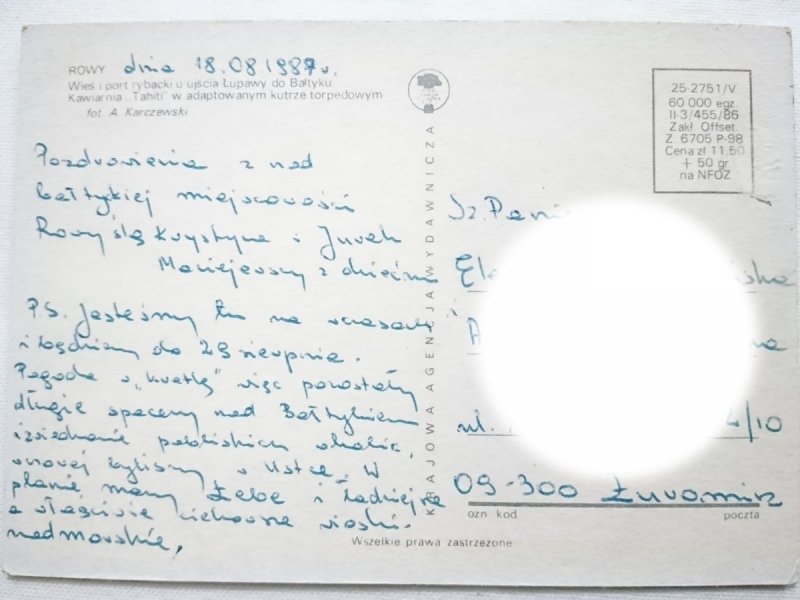 ROWY dnia 18.08.1987r.
Wieś i port rybacki u ujścia Łupawy do Bałtyku.
Kawiarnia „Tahiti" w adaptowanym kutrze torpedowym
fot. A. Karczewski
Pozdrowienia z nad
bałtykiej miejscowości
Rowy ślą Krystyna i Jurek
Maciejewscy z dziećmi
PS. Jesteśmy tu na wczasach
i będziemy do 29 sierpnia.
Pogoda w „kratkę" więc pozostały
długie spacery nad Bałtykiem
zwiedzanie pobliskich okolic,
wczoraj byliśmy w Ustce. W
planie mamy Łebę i
a właściwie ciekawsze wioski
nadmorskie,
KRAJOWA AGENCJA WYDAWNICZA
25-2751/V
60 000 egz.
II-3/455/86
Zakł. Offset.
Z. 6705 P-98
Cena zł 11,50
+ 50 gr
na NFOZ
Sz. Pani
ul. 4/10
09-300 Żuromin
ozn. kod poczta
Wszelkie prawa zastrzeżone